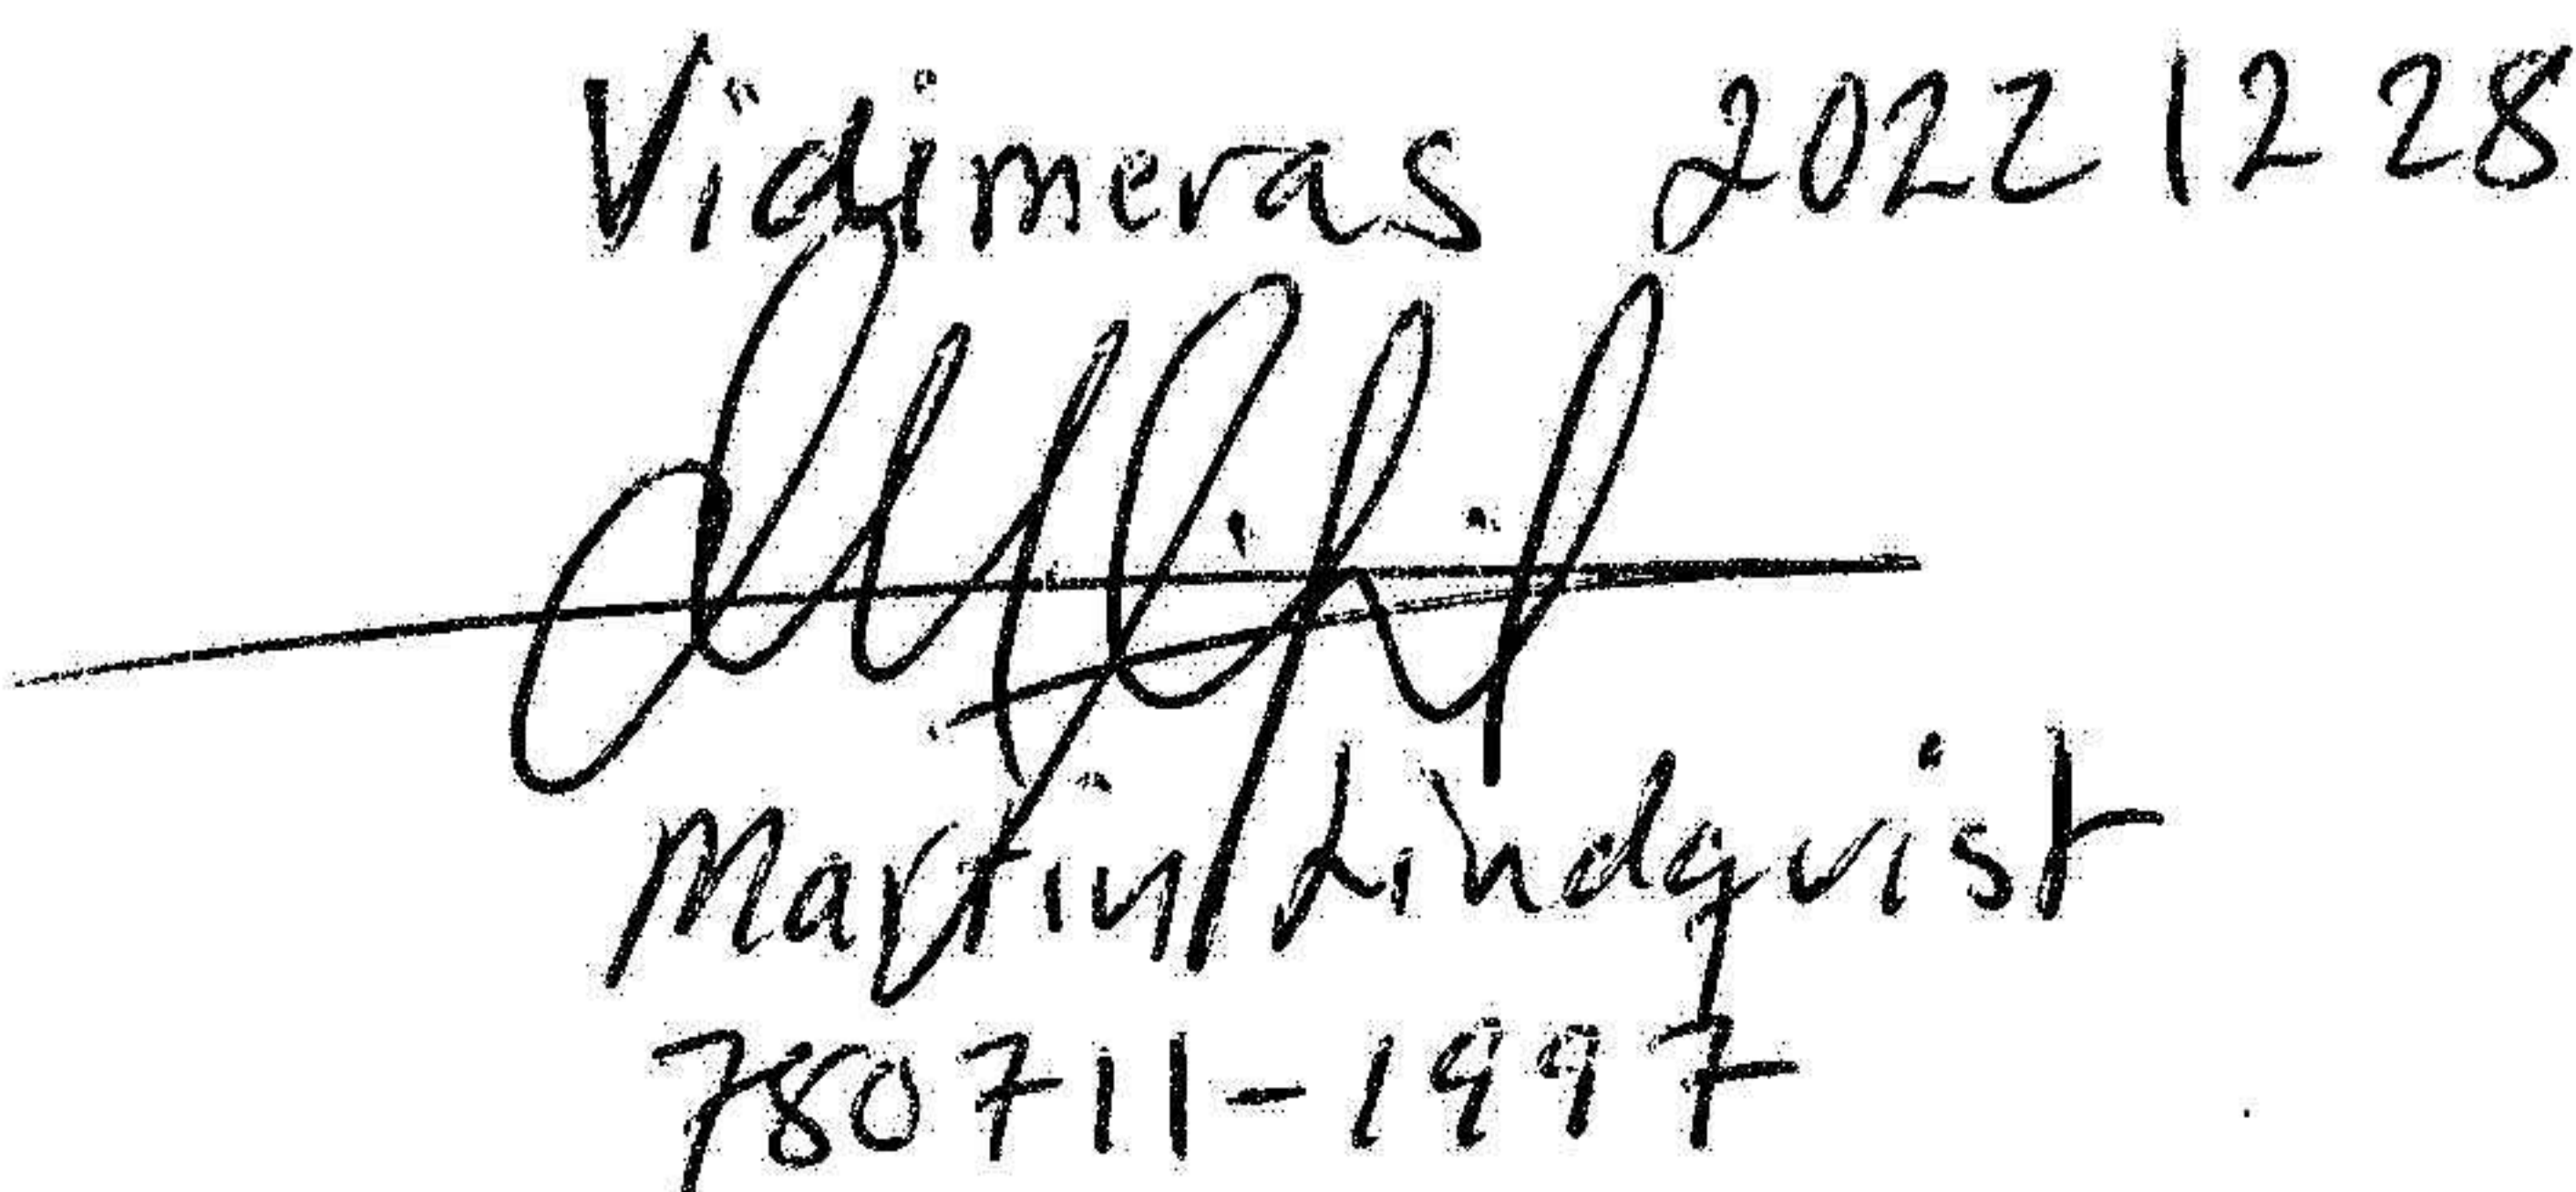 Vidimeras 2022 12 28
Martin Lindqvist
780711-1997